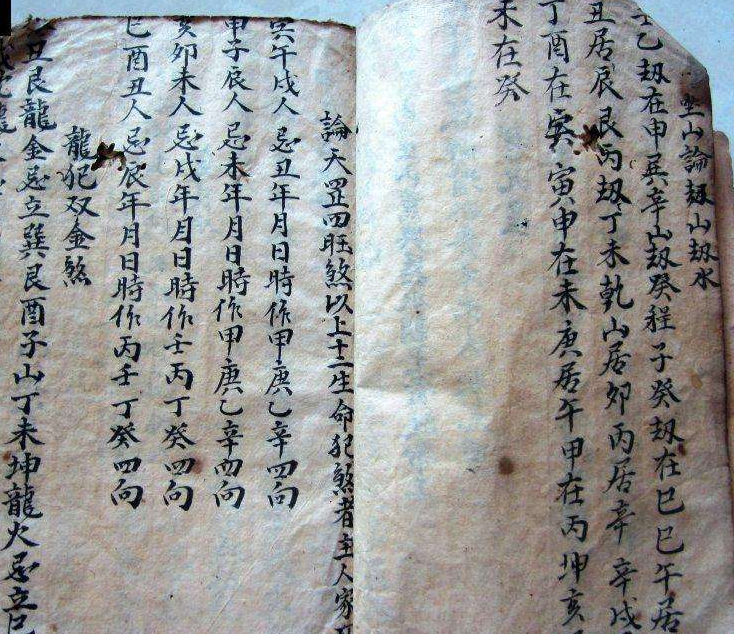 坐山論刼山刼水
乙刼在申巽辛山刼癸程子癸刼在巳巳午居
丑居辰艮丙刼丁未乾山居卯丙居辛辛戌
丁酉在寅申在未庚居午甲在丙坤亥
未在癸
論天罡四旺煞以上十二生命犯煞者主人家
寅午戌人忌丑年月日時作甲庚乙辛四向
申子辰人忌未年月日時作甲庚乙辛四向
亥卯未人忌戌年月日時作壬丙丁癸四向
巳酉丑人忌辰年月日時作丙壬丁癸四向
龍犯双金煞
丑艮龍金忌立巽艮酉子山丁未坤龍火忌立巳